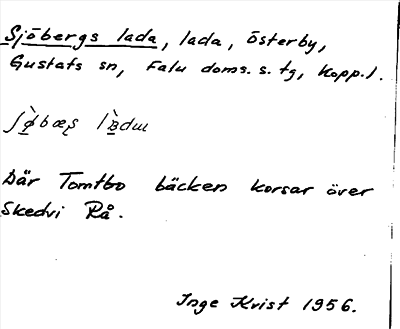 Sjöbergs lada, lada, Österby,
Gustafs sn, Falu doms. s. tg, Kopp. l.
Där Tomtbo bäcken korsar över
Skedvi Rå.
Inge Kvist 1956.